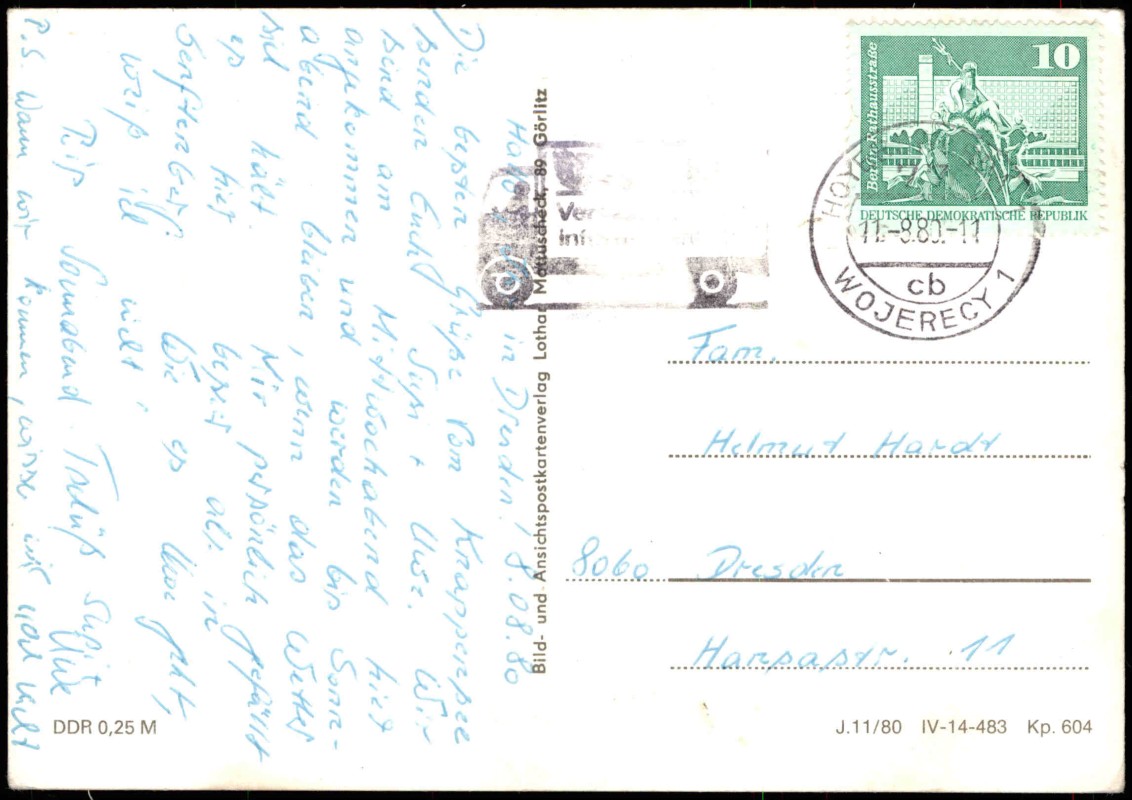 Hallo in Dresden! 8.08.80
Die besten Grüße vom Knappensee
senden Euch Susi + Uwe. Wir
sind am Mittwochabend hier
angekommen und werden bis Sonn-
abend bleiben, wenn das Wetter
sich hält. Mir persönlich gefällt
es hier besser als in
Senftenberg. Wie es Uwe geht,
weiß ich nicht.
Bis Sonnabend. Tschüß Susi
Uwe
P.S. Wann wir kommen, wissen wir noch nicht
Bild- und Ansichtspostkartenverlag Lothar Mattuscheck, 89 Görlitz
10
Berlin, Rathausstraße
DEUTSCHE DEMOKRATISCHE REPUBLIK
11.-8.80.-11
cb
WOJERECY 1
Fam.
Helmut Hardt
8060 Dresden
Hansastr. 11
DDR 0,25 M
J.11/80 IV-14-483 Kp. 604